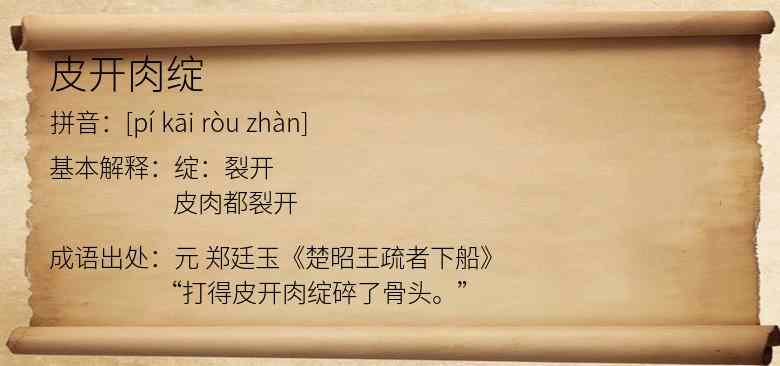 皮开肉绽
拼音：[pí kāi ròu zhàn]
基本解释：绽：裂开
皮肉都裂开
成语出处：元 郑廷玉《楚昭王疏者下船》
“打得皮开肉绽碎了骨头。”